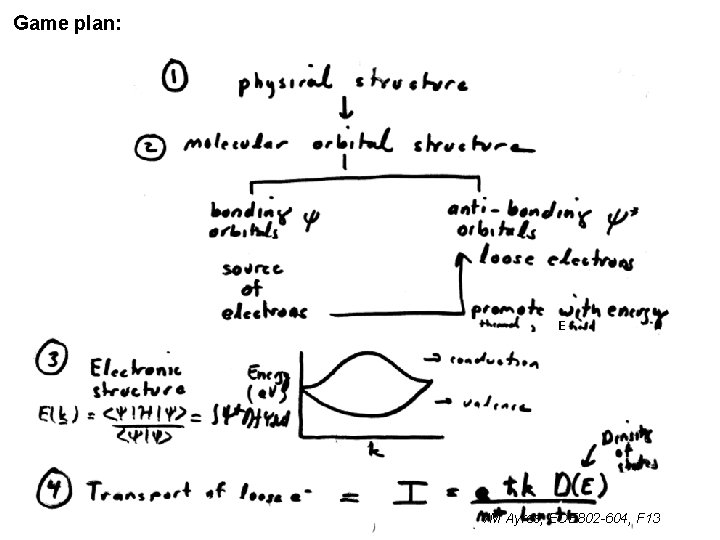 Game plan:
① physical structure
② molecular orbital structure
bonding orbitals ψ
anti-bonding orbitals ψ*
loose electrons
source
of
electrons
promote with energy
thermal, E field
③ Electronic structure
E(k) = <ψ|H|ψ> / <ψ|ψ> =
Energy
(eV)
→ conduction
→ valence
k
Density
of
states
④ Transport of loose e⁻ = I = e ħk D(E) / m* length
VM Ayres, ECE802-604, F13